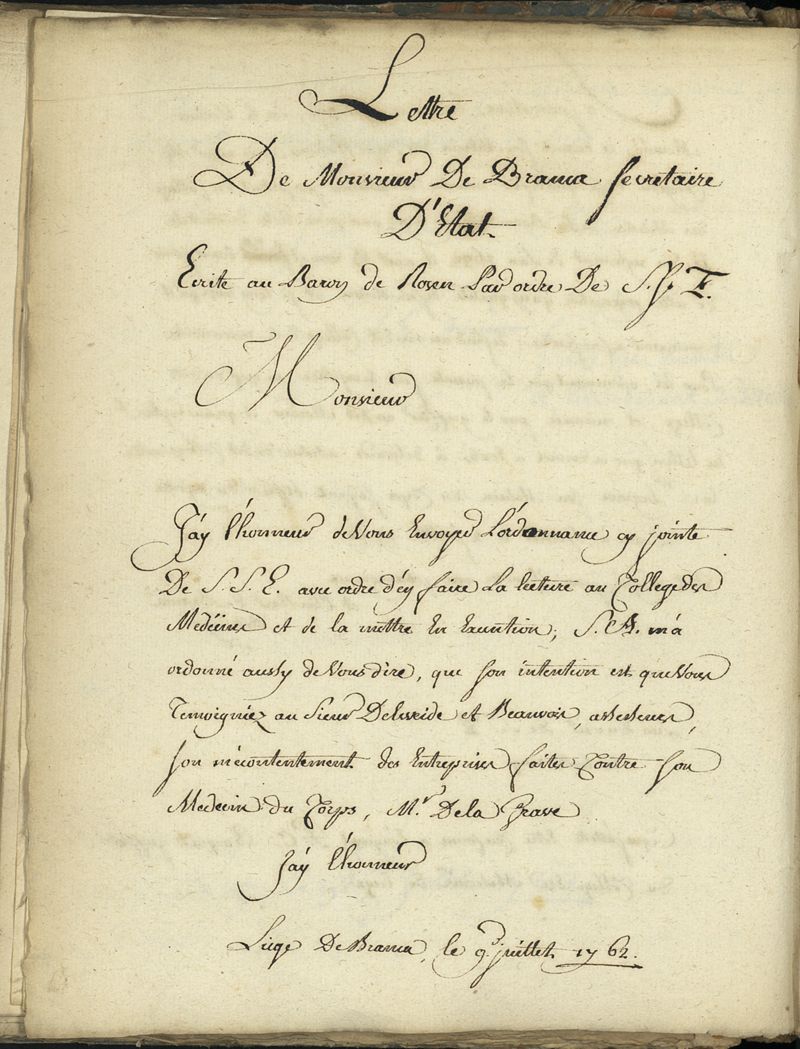 Lettre
De Monsieur De Brama secretaire
D'Etat
Ecrite au Baron de Rosen Par ordre De S.
Monsieur
J'ay l'honneur de Vous Envoyer L'ordonnance cy jointe
De S. S. E. avec ordre d'ey faire La lecture au College des
Medecins et de la mettre En Execution; S. A. m'a
ordonné aussy de Vous dire, que son intention est que Vous
Temoigniez au Sieur Delweide et Beauvois, assesseurs,
son mécontentement des Entreprises faites Contre son
Medecin du Corps, Mr. De la Brave
J'ay l'honneur
Liege De Brama, le 9e juillet 1762.